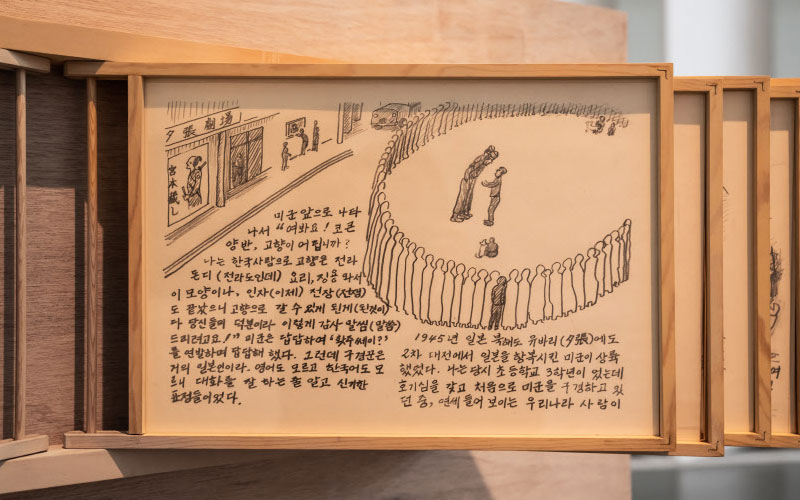 夕張劇場
宮木蔵し
1945년 일본 북해도 유바리 (夕張)에도
2차 대전에서 일본을 항복시킨 미군이 상륙
했었다. 나는 당시 초등학교 3학년이 었는데
호기심을 갖고 처음으로 미군을 구경하고 있
던 중, 연세 들어 보이는 우리나라 사람이
미군 앞으로 나타
나서 “여봐요! 코큰
양반, 고향이 어딥니까?
나는 한국사람으로 고향은 전라
돈디 (전라도인데) 요리, 징용 와서
이 모양이나, 인자(이제) 전장(전쟁)
도 끝났으니 고향으로 갈 수 있게 된게(된것이)
다 당신들의 덕분이라 이렇게 감사 말씸(말씀)
드리려고요!” 미군은 답답하여 “왓쓰쎄이?”
를 연발하며 답답해 했다. 그런데 구경꾼은
거의 일본인이라. 영어도 모르고 한국어도 모
르니 대화를 잘 하는 줄 알고 신기한
표정들이었다.